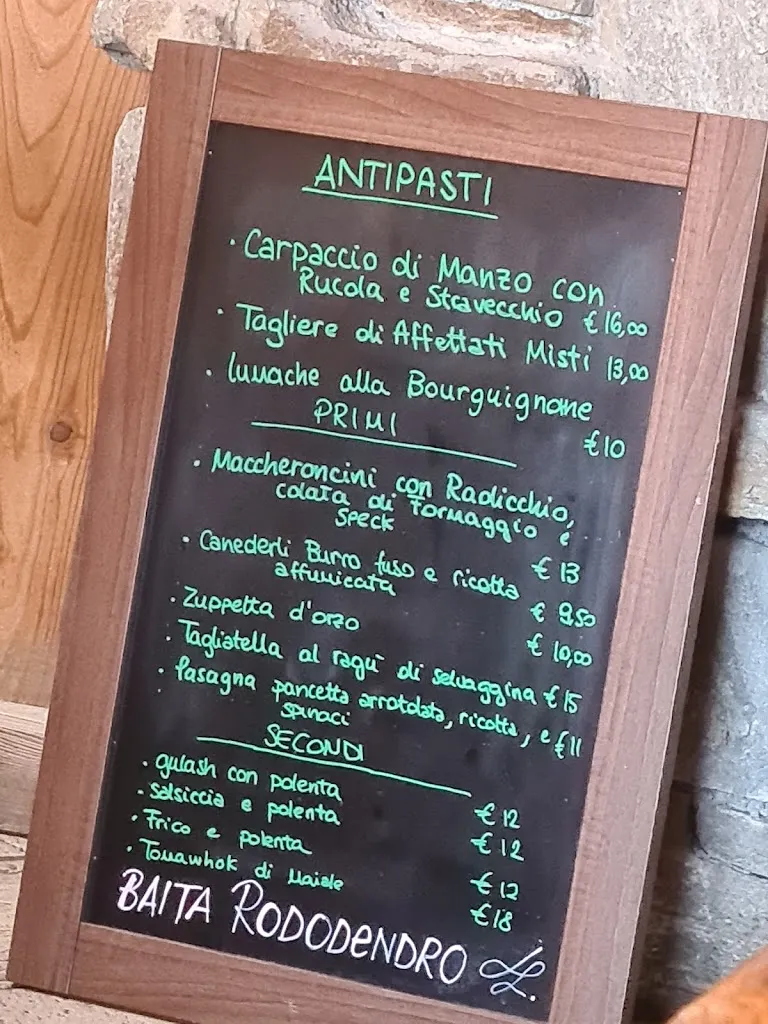 ANTIPASTI
· Carpaccio di Manzo con
Rucola e Stravecchio €16,00
· Tagliere di Affettati Misti 13,00
· lumache alla Bourguignonne
€10
PRIMI
· Maccheroncini con Radicchio,
colata di Formaggio e
Speck
€ 13
· Canederli Burro fuso e ricotta
affumicata
€ 9,50
· Zuppetta d'orzo
€ 10,00
· Tagliatella al ragù di selvaggina €15
· Lasagna pancetta arrotolata, ricotta, e
spinaci
€11
SECONDI
· gulash con polenta € 12
· Salsiccia e polenta € 12
· Frico e polenta € 12
· Tomawhok di Maiale €18
BAITA RODODENDRO